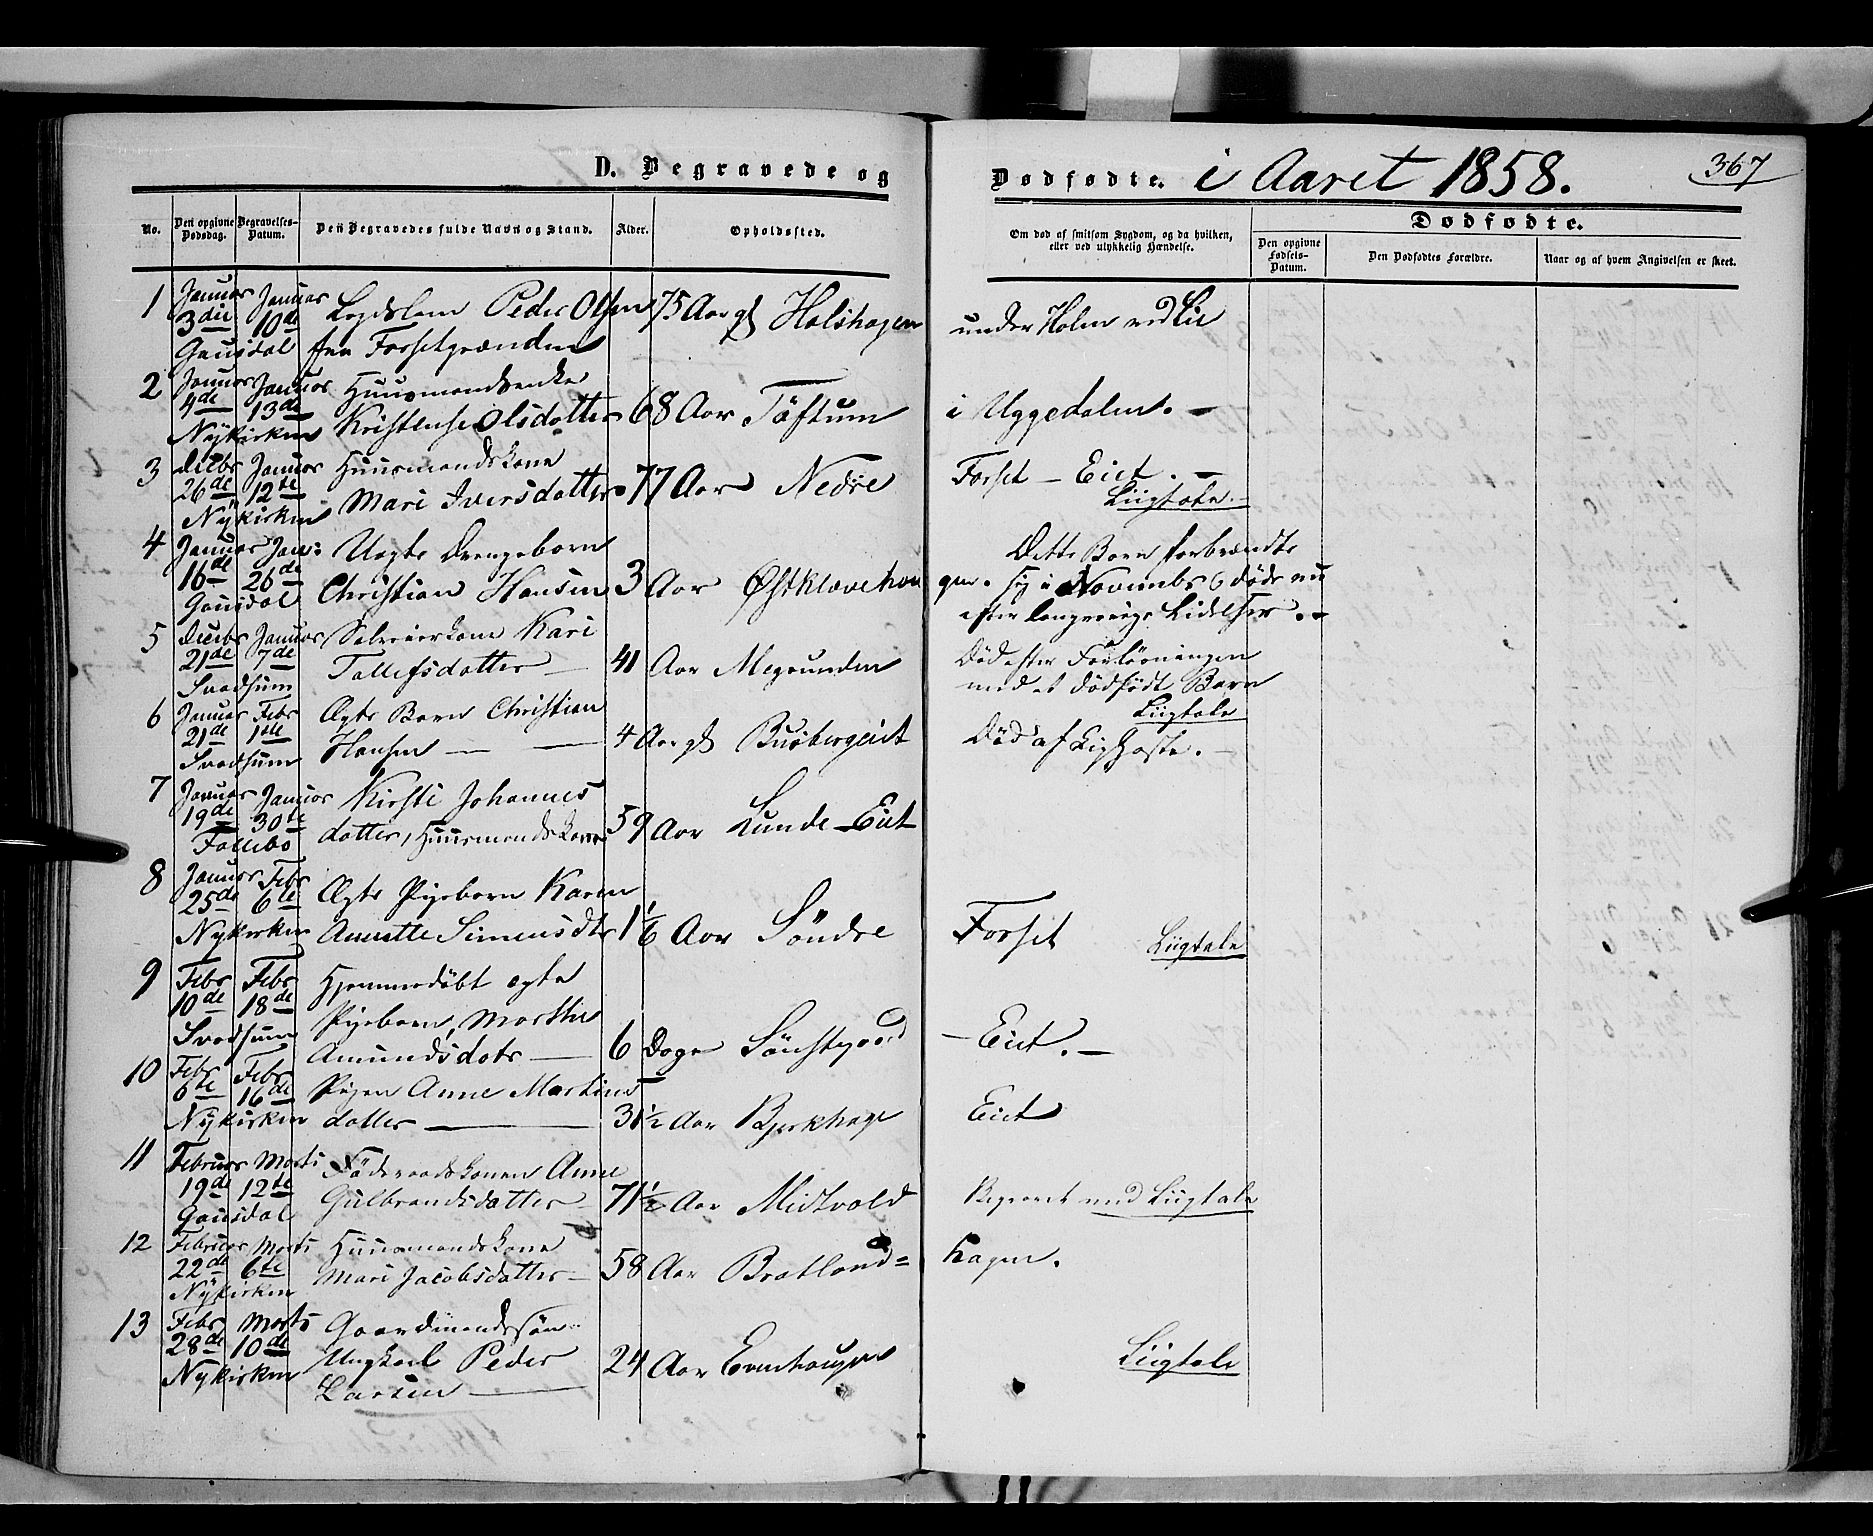 D. Begravede og
Dødfødte. i Aaret 1858.
367
No.
Den opgivne Dødsdag.
Begravelses-Datum.
Den Begravedes fulde Navn og Stand.
Alder.
Opholdssted.
Om død af smitsom Sygdom, og da hvilken, eller ved ulykkelig Hændelse.
Dødfødte.
Den opgivne Fødsels-Datum.
Den Dødfødtes Forældre.
Naar og af hvem Angivelsen er skeet.
1 Januar Januar Legdslem Peder Olsen 75 Aar gl Holshagen under Holm ved Lie
3die 10de
Gausdal fra Forsetgrænden
2 Januar Januar Huusmandsenke
4de 13de Kristense Olsdatter 68 Aar Töftum i Uggedalen. —
Nykirken
3 Decbr Januar Huusmandskone
26de 12te Mari Iversdatter 77 Aar Nedre Forset — Eiet. —
Nykirken Liigtale. —
4 Januar Jan: Uægte Drengebarn Dette Barn forbrændte
16de 26de Christian Hansen 3 Aar Østklævehougen. sig i Novembr & døde nu
Gausdal efter langvarige Lidelser. —
5 Decbr Januar Selveierkone Kari
21de 7de Tollefsdatter — 41 Aar Megrunden Død efter Forløsningen
Svadsum med et dödfödt Barn
Liigtale
6 Januar Febr Ægte Barn Christian
21de 1ste Hansen — — 4 Aar gl Busbergeiet Död af Kighoste. —
Svadsum
7 Januar Januar Kirsti Johannes
19de 30te datter, Huusmandskone 59 Aar Lunde — Eiet
Follebo
8 Januar Febr Ægte Pigebarn Karen
25de 6te
Nykirken Anette Simensdtr 1 1/6 Aar Söndre Forset Liigtale
9 Febr Febr Hjemmedöbt ægte
10de 18de Pigebarn, Marthe
Svadsum Amundsdatr — 6 Dage Sönstegaard — Eiet. —
10 Febr Febr Pigen Anne Martins
6te 16de
Nykirken datter — 31 1/2 Aar Bjerkhage Eiet
11 Februar Marts Föderaadskonen Anne
19de 12te Gulbrandsdatter — 71 1/2 Aar Midtvold Begravet med Liigtale
Gausdal
12 Februar Marts Huusmandskone
22de 6te Mari Jacobsdatter — 58 Aar Bratland= hagen.
Nykirken
13 Febr Marts Gaardmandssön
28de 10de Ungkarl Peder 24 Aar Evenhaugen Liigtale
Nykirken Larsen —